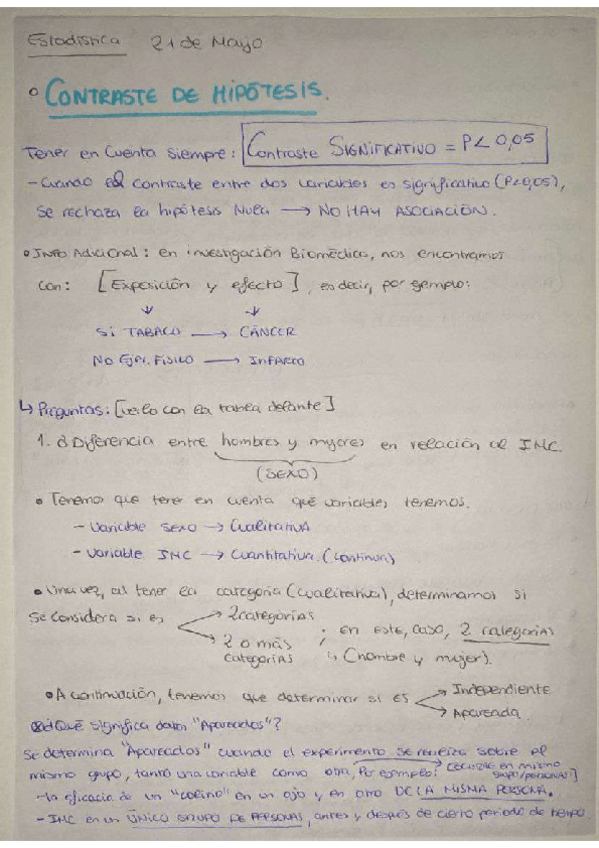 Estadística 21 de Mayo
• CONTRASTE DE HIPÓTESIS.
Tener en cuenta siempre: Contraste SIGNIFICATIVO = P< 0,05
- Cuando el contraste entre dos variables es significativo (P<0,05),
se rechaza la hipótesis Nula → NO HAY ASOCIACIÓN.
• INFO Adicional: en investigación Biomédica, nos encontramos
con: [Exposición y efecto], es decir, por ejemplo:
↓ ↓
SI TABACO → CÁNCER
NO Ejer. FÍSICO → INFARTO
↳ Preguntas: [verlo con la tabla delante]
1. ¿Diferencia entre hombres y mujeres en relación al IMC.
(SEXO)
• Tenemo que tener en cuenta qué variables tenemos.
- Variable sexo → Cualitativa
- Variable IMC → Cuantitativa (continua)
• Una vez, al tener la categoría (cualitativa), determinamos si
se considera si es → 2 categorías
→ 2 o más categorías ; en este, caso, 2 categorías
↳ (hombre y mujer).
• A continuación, tenemos que determinar si es → Independiente
→ Apareada
¿Qué significa datos "Apareados"?
Se determina "Apareados" cuando el experimento se realiza sobre el
mismo grupo, tanto una variable como otra, Por ejemplo: en mismo grupo/personas]
- la eficacia de un "colirio" en un ojo y en otro DE LA MISMA PERSONA.
- IMC en un ÚNICO GRUPO DE PERSONAS, antes y después de cierto periodo de tiempo